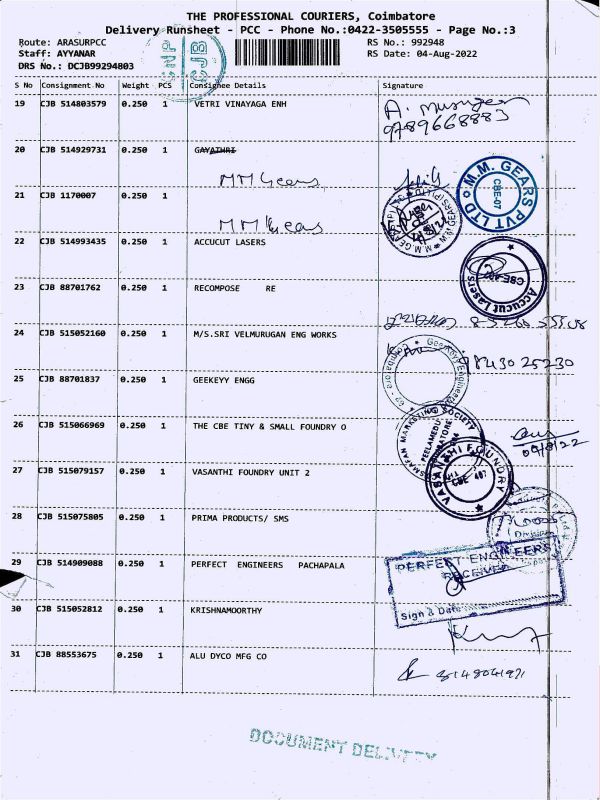 THE PROFESSIONAL COURIERS, Coimbatore
Delivery Runsheet - PCC - Phone No.:0422-3505555 - Page No.:3
Route: ARASURPCC RS No.: 992948
Staff: AYYANAR RS Date: 04-Aug-2022
DRS No.: DCJB99294803
GNP
CJB
S No Consignment No Weight PCS Consignee Details Signature
19 CJB 514803579 0.250 1 VETRI VINAYAGA ENH
9789668883
20 CJB 514929731 0.250 1 GAYATHRI
MM Gears
M.M. GEARS PVT LTD
CBE-07
21 CJB 1170007 0.250 1
MM Gears
22 CJB 514993435 0.250 1 ACCUCUT LASERS
Accucut Lasers
23 CJB 88701762 0.250 1 RECOMPOSE RE
24 CJB 515052160 0.250 1 M/S.SRI VELMURUGAN ENG WORKS
98430 25230
25 CJB 88701837 0.250 1 GEEKEYY ENGG
26 CJB 515066969 0.250 1 THE CBE TINY & SMALL FOUNDRY O
MARKETING SOCIETY
PEELAMEDU
27 CJB 515079157 0.250 1 VASANTHI FOUNDRY UNIT 2
VASANTHI FOUNDRY
28 CJB 515075805 0.250 1 PRIMA PRODUCTS/ SMS
Division
29 CJB 514909088 0.250 1 PERFECT ENGINEERS PACHAPALA
PERFECT ENGINEERS
RECEIVED
Sign & Date
30 CJB 515052812 0.250 1 KRISHNAMOORTHY
31 CJB 88553675 0.250 1 ALU DYCO MFG CO
DOCUMENT